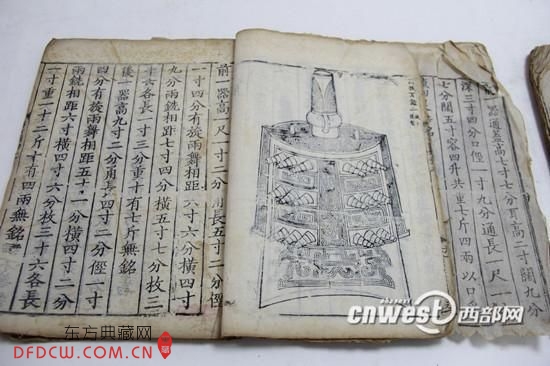 器通蓋高七寸七分耳高二寸闊九分
深三寸四分口徑一寸九分通長一尺一寸
七分闊五寸容四升共重七斤四兩以口
前一器高一尺二分甬長五寸二分徑
一寸四分有旋兩舞相距六寸六分橫四寸
九分兩銑相距七寸四分橫五寸七分枚三
十六各長一寸三分重十有七斤無銘
後一器高九寸二分甬長四寸二分徑一寸
四分有旋兩舞相距五寸一分橫四寸二分
兩銑相距六寸橫四寸六分枚三十六各長
一寸重一十二斤十有四兩無銘
cnwest 西部网
东方典藏网
DFDCW.COM.CN